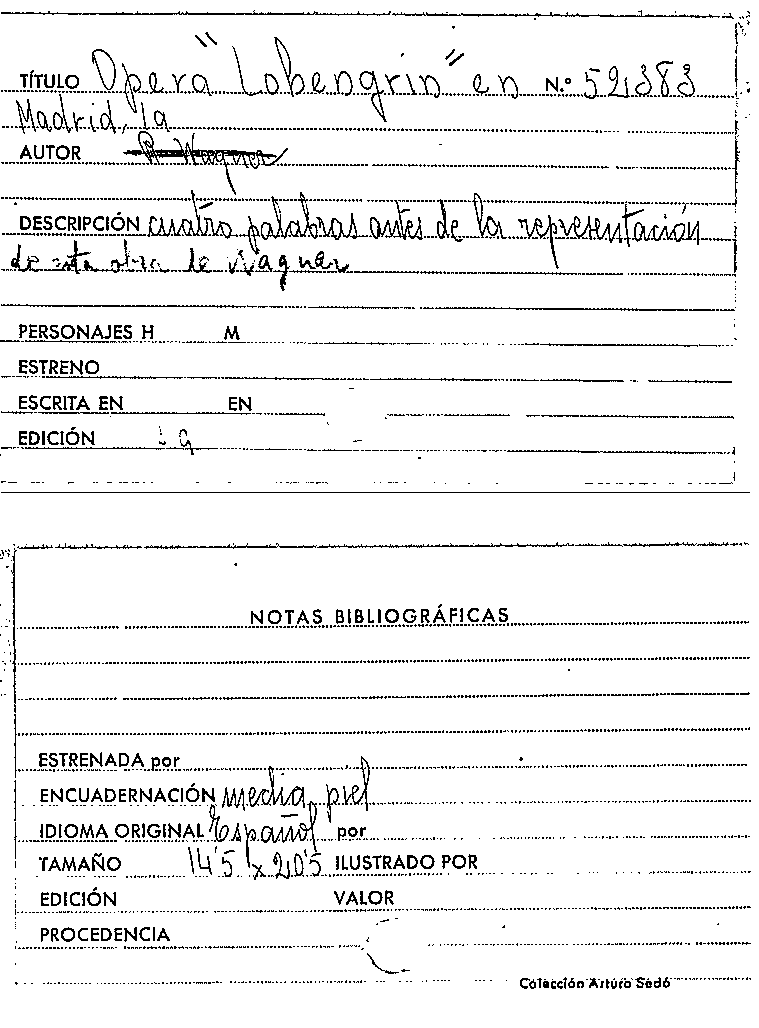 TÍTULO Opera "Lohengrin" en N.º 52383
Madrid, la
AUTOR R. Wagner
DESCRIPCIÓN cuatro palabras antes de la representación
de esta obra de Wagner
PERSONAJES H M
ESTRENO
ESCRITA EN EN
EDICIÓN
NOTAS BIBLIOGRÁFICAS
ESTRENADA por
ENCUADERNACIÓN media piel
IDIOMA ORIGINAL Español por
TAMAÑO 14'5 x 20'5 ILUSTRADO POR
EDICIÓN VALOR
PROCEDENCIA
Colección Arturo Sedó